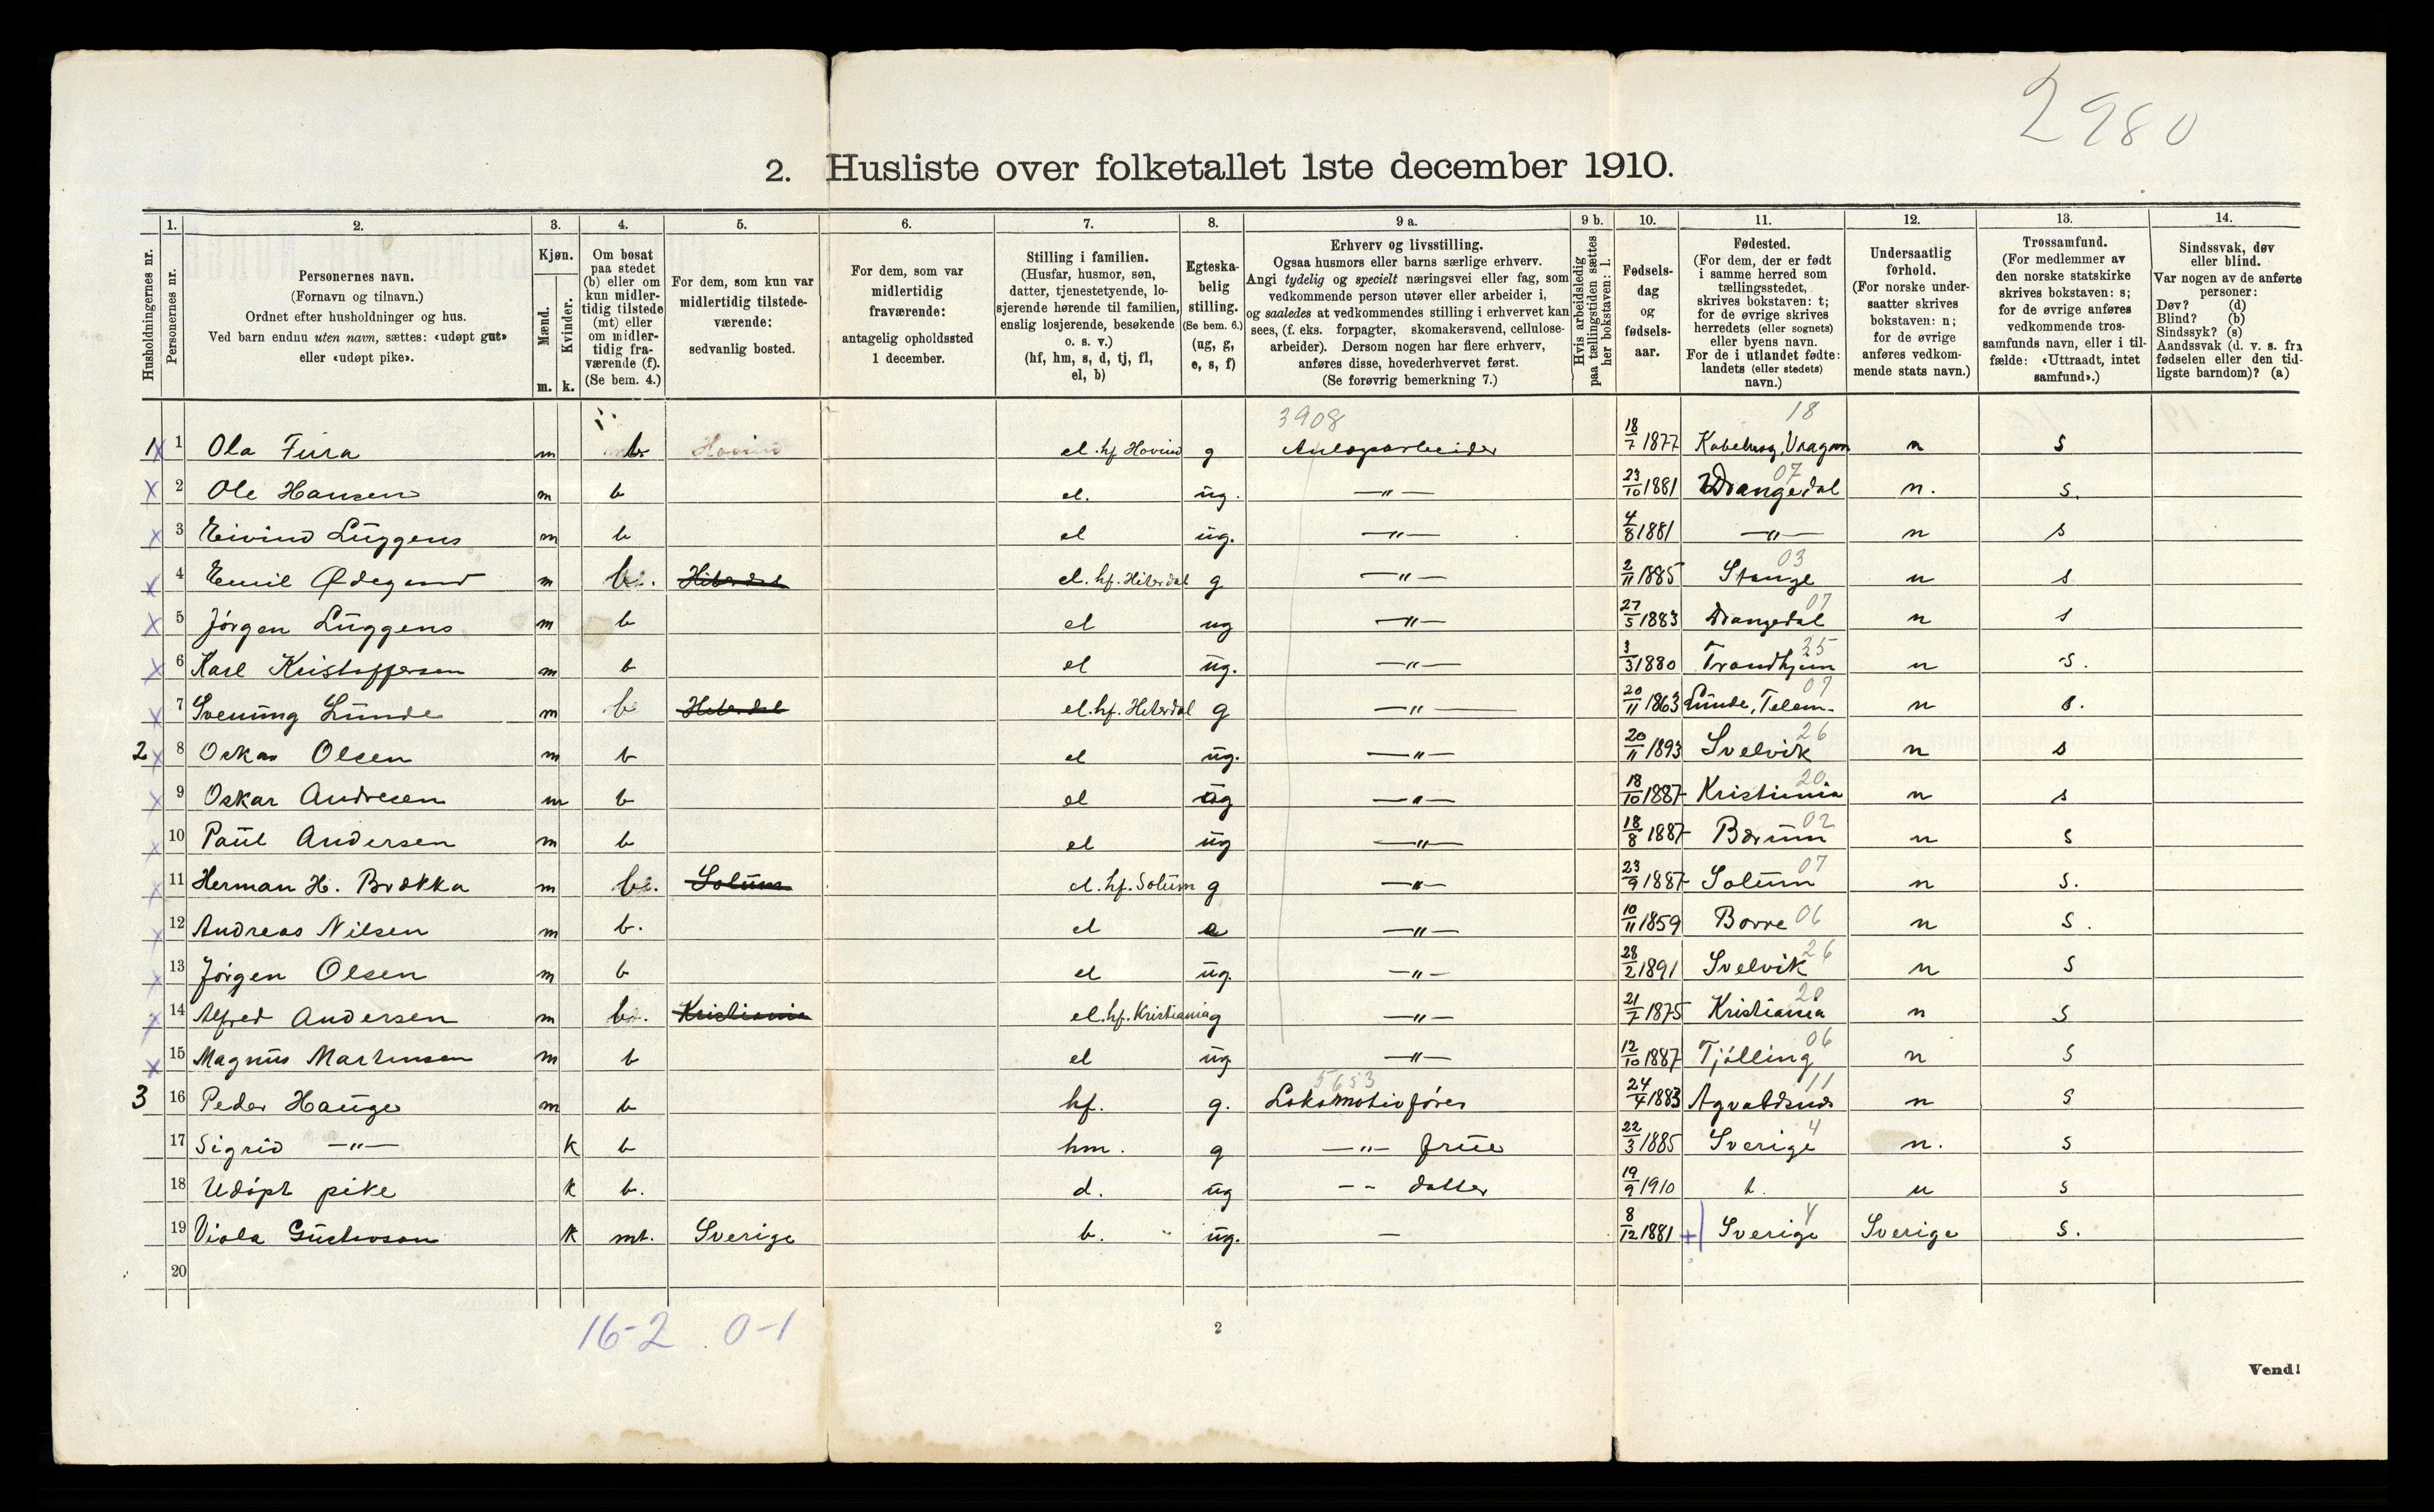 2980
2. Husliste over folketallet 1ste december 1910.
Husholdningernes nr.
1. Personernes nr.
2. Personernes navn.
(Fornavn og tilnavn.)
Ordnet efter husholdninger og hus.
Ved barn endnu uten navn, sættes: «udøpt gut»
eller «udøpt pike».
3. Kjøn.
Mænd. m.
Kvinder. k.
4. Om bosat
paa stedet
(b) eller om
kun midler-
tidig tilstede
(mt) eller
om midler-
tidig fra-
værende (f).
(Se bem. 4.)
5. For dem, som kun var
midlertidig tilstede-
værende:
sedvanlig bosted.
6. For dem, som var
midlertidig
fraværende:
antagelig opholdssted
1 december.
7. Stilling i familien.
(Husfar, husmor, søn,
datter, tjenestetyende, lo-
sjerende hørende til familien,
enslig losjerende, besøkende
o. s. v.)
(hf, hm, s, d, tj, fl,
el, b)
8. Egteska-
belig
stilling.
(Se bem. 6.)
(ug, g,
e, s, f)
9 a. Erhverv og livsstilling.
Ogsaa husmors eller barns særlige erhverv.
Angi tydelig og specielt næringsvei eller fag, som
vedkommende person utøver eller arbeider i,
og saaledes at vedkommendes stilling i erhvervet kan
sees, (f. eks. forpagter, skomakersvend, cellulose-
arbeider). Dersom nogen har flere erhverv,
anføres disse, hovederhvervet først.
(Se forøvrig bemerkning 7.)
9 b. Hvis arbeidsledig
paa tællingstiden sættes
her bokstaven: l.
10. Fødsels-
dag
og
fødsels-
aar.
11. Fødested.
(For dem, der er født
i samme herred som
tællingsstedet,
skrives bokstaven: t;
for de øvrige skrives
herredets (eller sognets)
eller byens navn.
For de i utlandet fødte:
landets (eller stedets)
navn.)
12. Undersaatlig
forhold.
(For norske under-
saatter skrives
bokstaven: n;
for de øvrige
anføres vedkom-
mende stats navn.)
13. Trossamfund.
(For medlemmer av
den norske statskirke
skrives bokstaven: s;
for de øvrige anføres
vedkommende tros-
samfunds navn, eller i til-
fælde: «Uttraadt, intet
samfund».)
14. Sindssvak, døv
eller blind.
Var nogen av de anførte
personer:
Døv? (d)
Blind? (b)
Sindssyk? (s)
Aandssvak (d. v. s. fra
fødselen eller den tid-
ligste barndom)? (a)
3908 18
1 x 1 Ola Fura m b Hovind el. hf Hovind g Anlægsarbeider 18/7 1877 n s
x 2 Ole Hansen m b el. ug. —"— 23/10 1881 Drangedal 07 n. s.
x 3 Eivind Luggens m b el ug. —"— 4/8 1881 —"— n s
x 4 Emil Ødegaard m b. Hiterdal el. hf. Hiterdal g —"— 2/11 1885 Stange 03 n s
x 5 Jørgen Luggens m b el ug —"— 27/5 1883 Drangedal 07 n s
x 6 Karl Kristoffersen m b el ug. —"— 3/3 1880 Trondhjem 35 n s.
x 7 Svenung Lunde m b Hiterdal el. hf. Hiterdal g —"— 20/11 1863 Lunde, Telem. 07 n s.
2 x 8 Oskar Olsen m b el ug. —"— 20/11 1893 Svelvik 26 n s
x 9 Oskar Andresen m b el ug —"— 18/10 1887 Kristiania 20 n s
x 10 Paul Andersen m b el ug —"— 18/8 1887 Bærum 02 n s
x 11 Herman H. Brækka m b. Solum el. hf. Solum g —"— 23/9 1887 Solum 07 n s.
x 12 Andreas Nilsen m b. el e —"— 10/11 1859 Borre 06 n s.
x 13 Jørgen Olsen m b el ug. —"— 28/2 1891 Svelvik 26 n s
x 14 Alfred Andersen m b. Kristiania el. hf. Kristiania g —"— 21/7 1875 Kristiania 20 n s
x 15 Magnus Martinsen m b el ug —"— 12/10 1887 Tjølling 06 n s
5653
3 16 Peder Hauge m b hf. g. Lokomotivfører 24/4 1883 Agvaldsnes 11 n s
17 Sigrid —"— k b hm. g —"— frue 22/3 1885 Sverige 4 n. s
18 Udøpt pike k b. d. ug -- datter 19/9 1910 t. n s
19 Viola Gustavson k mt. Sverige b. ug. — 8/12 1881 + Sverige 4 Sverige s.
20
16-2 0-1
2
Vend!